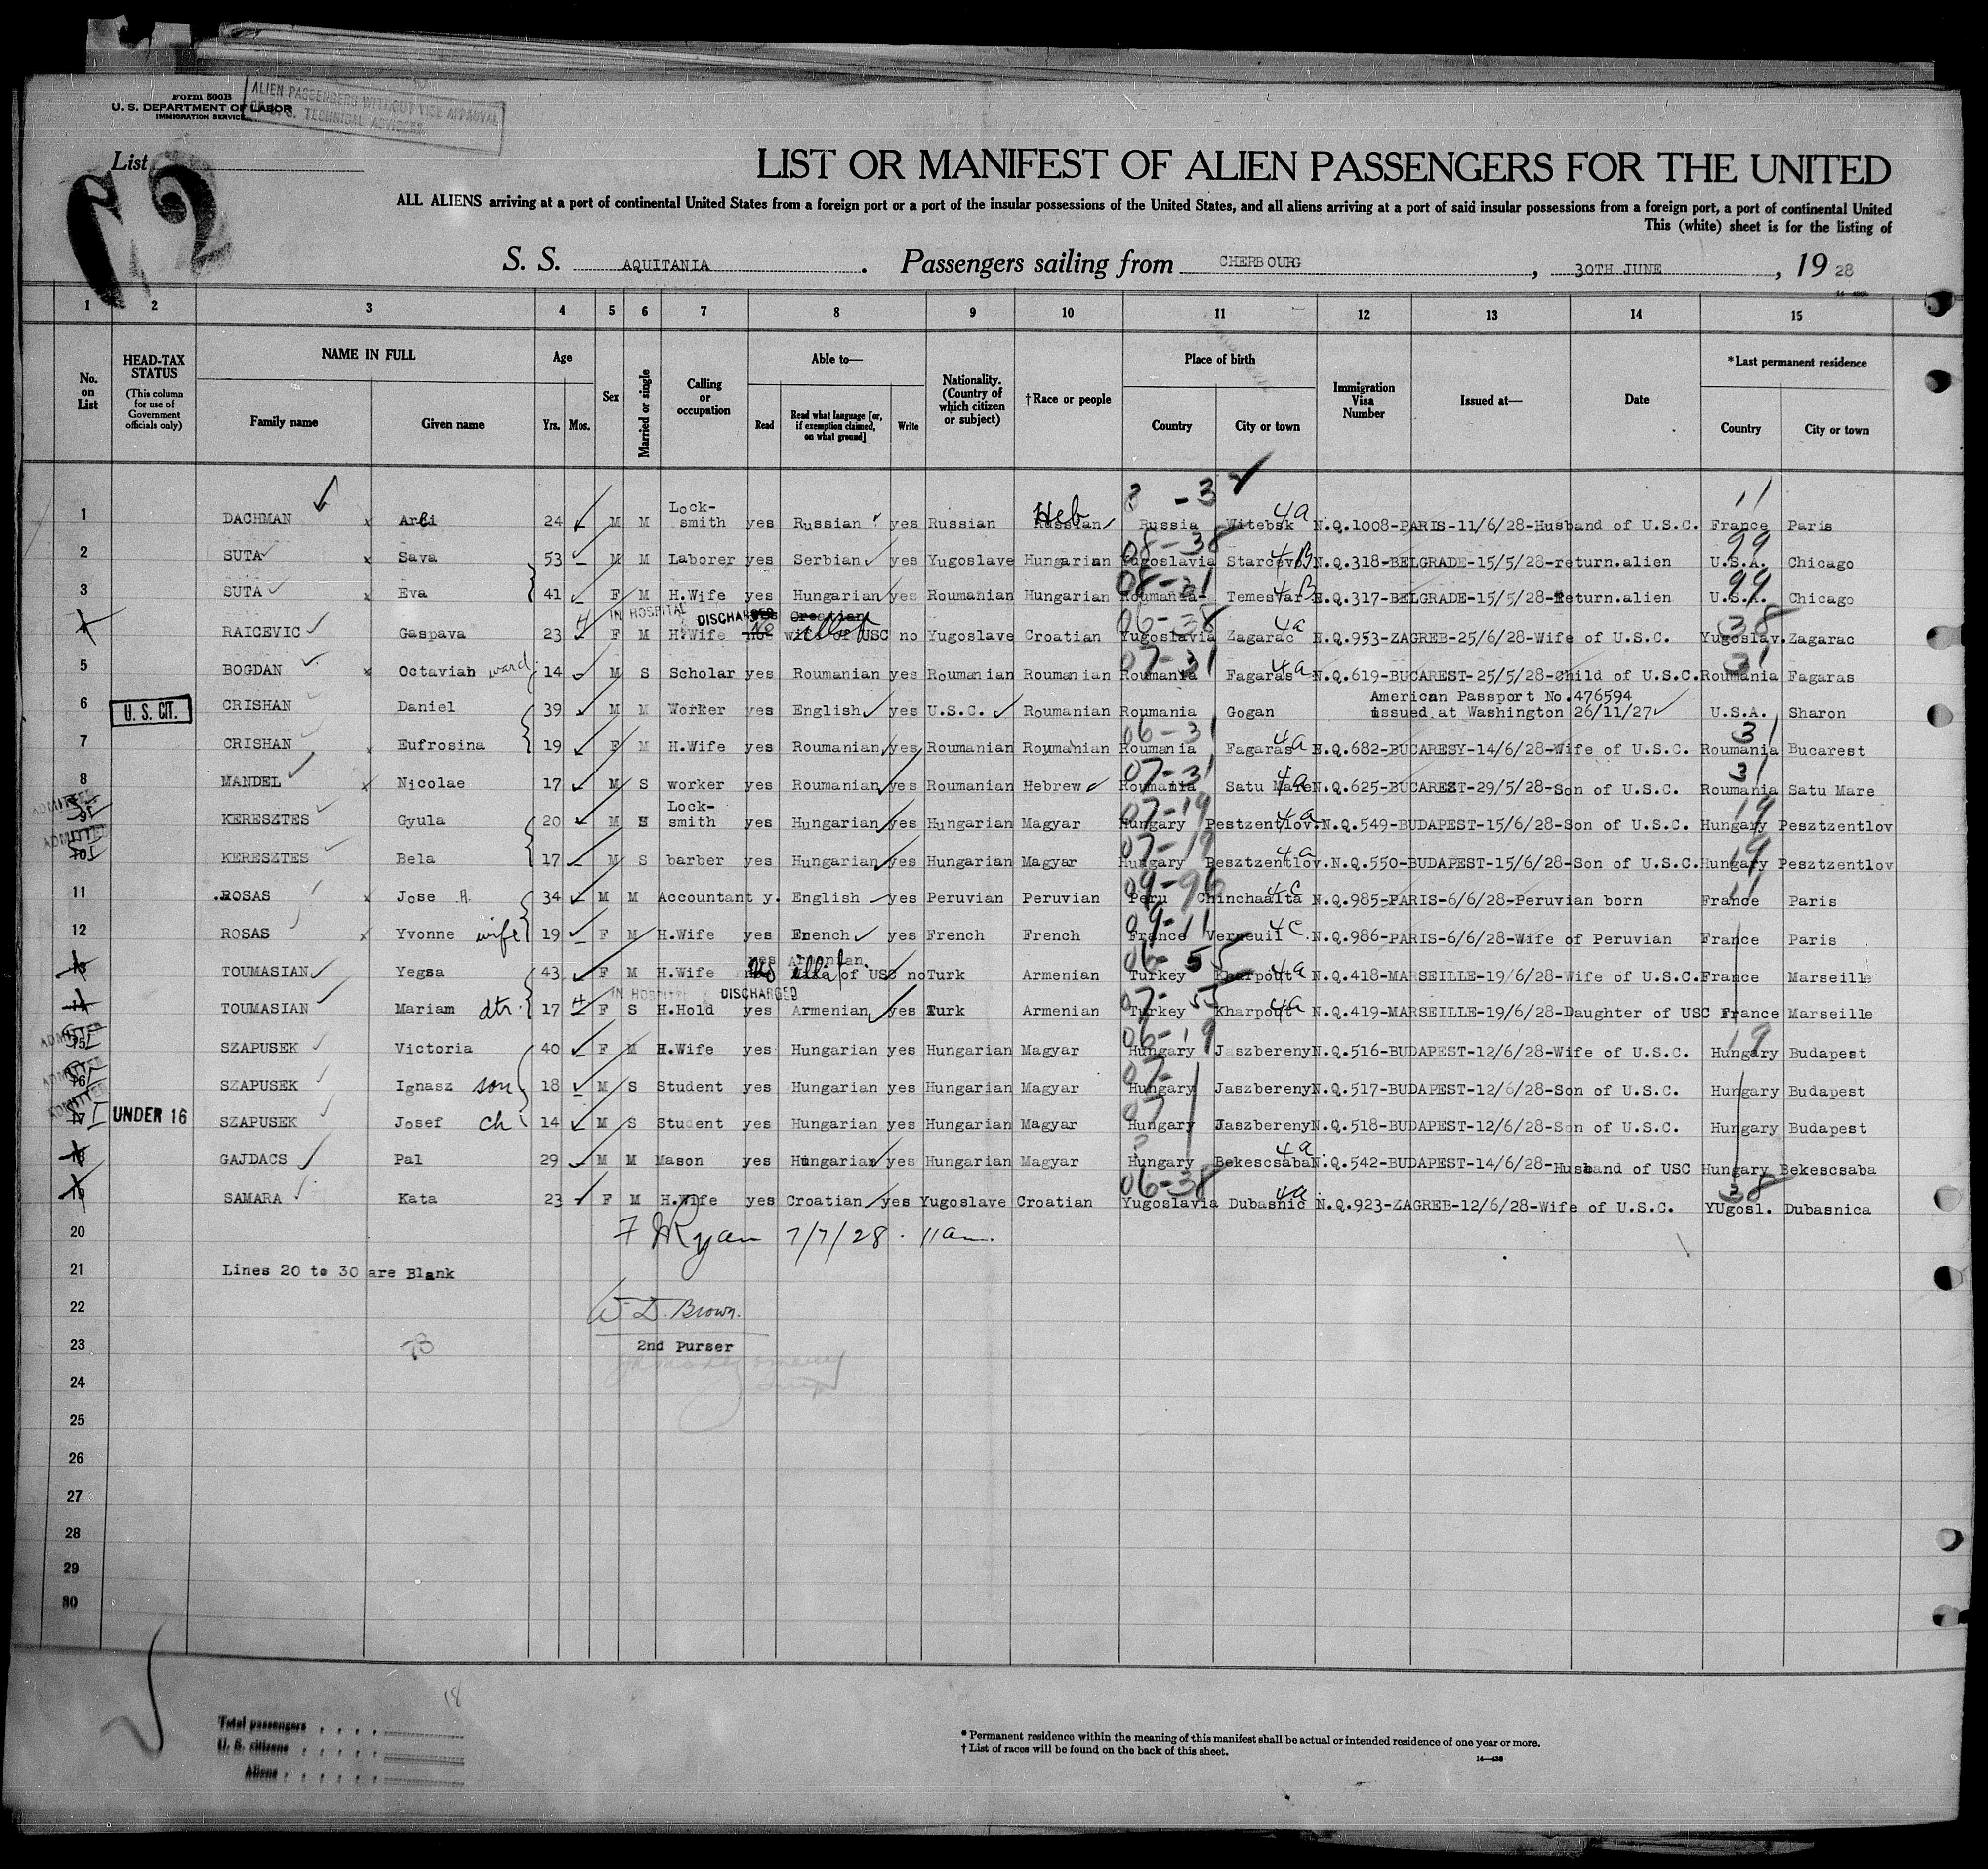 Form 500B
U. S. DEPARTMENT OF LABOR
IMMIGRATION SERVICE
ALIEN PASSENGERS WITHOUT VISE APPROVAL
OF U. S. TECHNICAL ADVISERS
List
LIST OR MANIFEST OF ALIEN PASSENGERS FOR THE UNITED
ALL ALIENS arriving at a port of continental United States from a foreign port or a port of the insular possessions of the United States, and all aliens arriving at a port of said insular possessions from a foreign port, a port of continental United
This (white) sheet is for the listing of
S. S. AQUITANIA . Passengers sailing from CHERBOURG , 30TH JUNE , 19 28
1 2 3 4 5 6 7 8 9 10 11 12 13 14 15
No. on List
HEAD-TAX STATUS
(This column for use of Government officials only)
NAME IN FULL
Family name Given name
Age
Yrs. Mos.
Sex
Married or single
Calling or occupation
Able to—
Read Read what language [or, if exemption claimed, on what ground] Write
Nationality. (Country of which citizen or subject)
†Race or people
Place of birth
Country City or town
Immigration Visa Number
Issued at—
Date
*Last permanent residence
Country City or town
1 DACHMAN x 24 M M Lock-smith yes Russian yes Russian Russian Heb Russia Witebsk 4a N.Q.1008-PARIS-11/6/28-Husband of U.S.C. France Paris
2 SUTA x Sava 53 M M Laborer yes Serbian yes Yugoslave Hungarian Yugoslavia 08-38 Starcevo 4B N.Q.318-BELGRADE-15/5/28-return.alien U.S.A. 99 Chicago
3 SUTA x Eva 41 F M H.Wife yes Hungarian yes Roumanian Hungarian Roumania 08-31 Temesvar 4B N.Q.317-BELGRADE-15/5/28-Return.alien U.S.A. 99 Chicago
IN HOSPITAL DISCHARGED
4 RAICEVIC Gaspava 23 F M H.Wife No wife of USC no Yugoslave Croatian Yugoslavia 06-38 Zagarac 4a N.Q.953-ZAGREB-25/6/28-Wife of U.S.C. Yugoslav. 38 Zagarac
5 BOGDAN x Octavian ward 14 M S Scholar yes Roumanian yes Roumanian Roumanian Roumania 07-31 Fagaras 4a N.Q.619-BUCAREST-25/5/28-Child of U.S.C. Roumania 31 Fagaras
6 U. S. CIT. CRISHAN Daniel 39 M M Worker yes English yes U.S.C. Roumanian Roumania Gogan American Passport No.476594 issued at Washington 26/11/27 U.S.A. Sharon
7 CRISHAN x Eufrosina 19 F M H.Wife yes Roumanian yes Roumanian Roumanian Roumania 06-31 Fagaras 4a N.Q.682-BUCARESY-14/6/28-Wife of U.S.C. Roumania 31 Bucarest
8 MANDEL x Nicolae 17 M S worker yes Roumanian yes Roumanian Hebrew Roumania 07-31 Satu Mare 4a N.Q.625-BUCAREST-29/5/28-Son of U.S.C. Roumania 31 Satu Mare
ADMITTED
9 KERESZTES Gyula 20 M S Lock-smith yes Hungarian yes Hungarian Magyar Hungary 07-19 Pestzentlov. 4a N.Q.549-BUDAPEST-15/6/28-Son of U.S.C. Hungary 19 Pesztzentlov
ADMITTED
10 KERESZTES Bela 17 M S barber yes Hungarian yes Hungarian Magyar Hungary 07-19 Pesztzentlov. 4a N.Q.550-BUDAPEST-15/6/28-Son of U.S.C. Hungary 19 Pesztzentlov
11 ROSAS x Jose A. 34 M M Accountant y. English yes Peruvian Peruvian Peru 09-96 Chinchaalta 4C N.Q.985-PARIS-6/6/28-Peruvian born France 11 Paris
12 ROSAS x Yvonne wife 19 F M H.Wife yes French yes French French France 09-11 Verneuil 4C. N.Q.986-PARIS-6/6/28-Wife of Peruvian France Paris
yes Armenian.
13 TOUMASIAN Yegsa 43 F M H.Wife of USC no Turk Armenian Turkey 06-55 Kharpout 4a N.Q.418-MARSEILLE-19/6/28-Wife of U.S.C. France Marseille
IN HOSPITAL DISCHARGED
14 TOUMASIAN Mariam dtr. 17 F S H.Hold yes Armenian yes Turk Armenian Turkey 07-55 Kharpout 4a N.Q.419-MARSEILLE-19/6/28-Daughter of USC France Marseille
ADMITTED
15 SZAPUSEK Victoria 40 F M H.Wife yes Hungarian yes Hungarian Magyar Hungary 06-19 Jaszbereny N.Q.516-BUDAPEST-12/6/28-Wife of U.S.C. Hungary 19 Budapest
ADMITTED
16 SZAPUSEK Ignasz son 18 M S Student yes Hungarian yes Hungarian Magyar Hungary 07- Jaszbereny N.Q.517-BUDAPEST-12/6/28-Son of U.S.C. Hungary Budapest
ADMITTED
17 UNDER 16 SZAPUSEK Josef ch 14 M S Student yes Hungarian yes Hungarian Magyar Hungary 07 Jaszbereny N.Q.518-BUDAPEST-12/6/28-Son of U.S.C. Hungary Budapest
18 GAJDACS Pal 29 M M Mason yes Hungarian yes Hungarian Magyar Hungary Bekescsaba 4a N.Q.542-BUDAPEST-14/6/28-Husband of USC Hungary Bekescsaba
19 SAMARA Kata 23 F M H.Wife yes Croatian yes Yugoslave Croatian Yugoslavia 06-38 Dubasnic 4a N.Q.923-ZAGREB-12/6/28-Wife of U.S.C. YUgosl. 38 Dubasnica
20 Ryan 7/7/28 . 11am.
21 Lines 20 to 30 are Blank
22 W. D. Brown.
23 2nd Purser
24
25
26
27
28
29
30
18
Total passengers
U. S. citizens
Aliens
* Permanent residence within the meaning of this manifest shall be actual or intended residence of one year or more.
† List of races will be found on the back of this sheet.